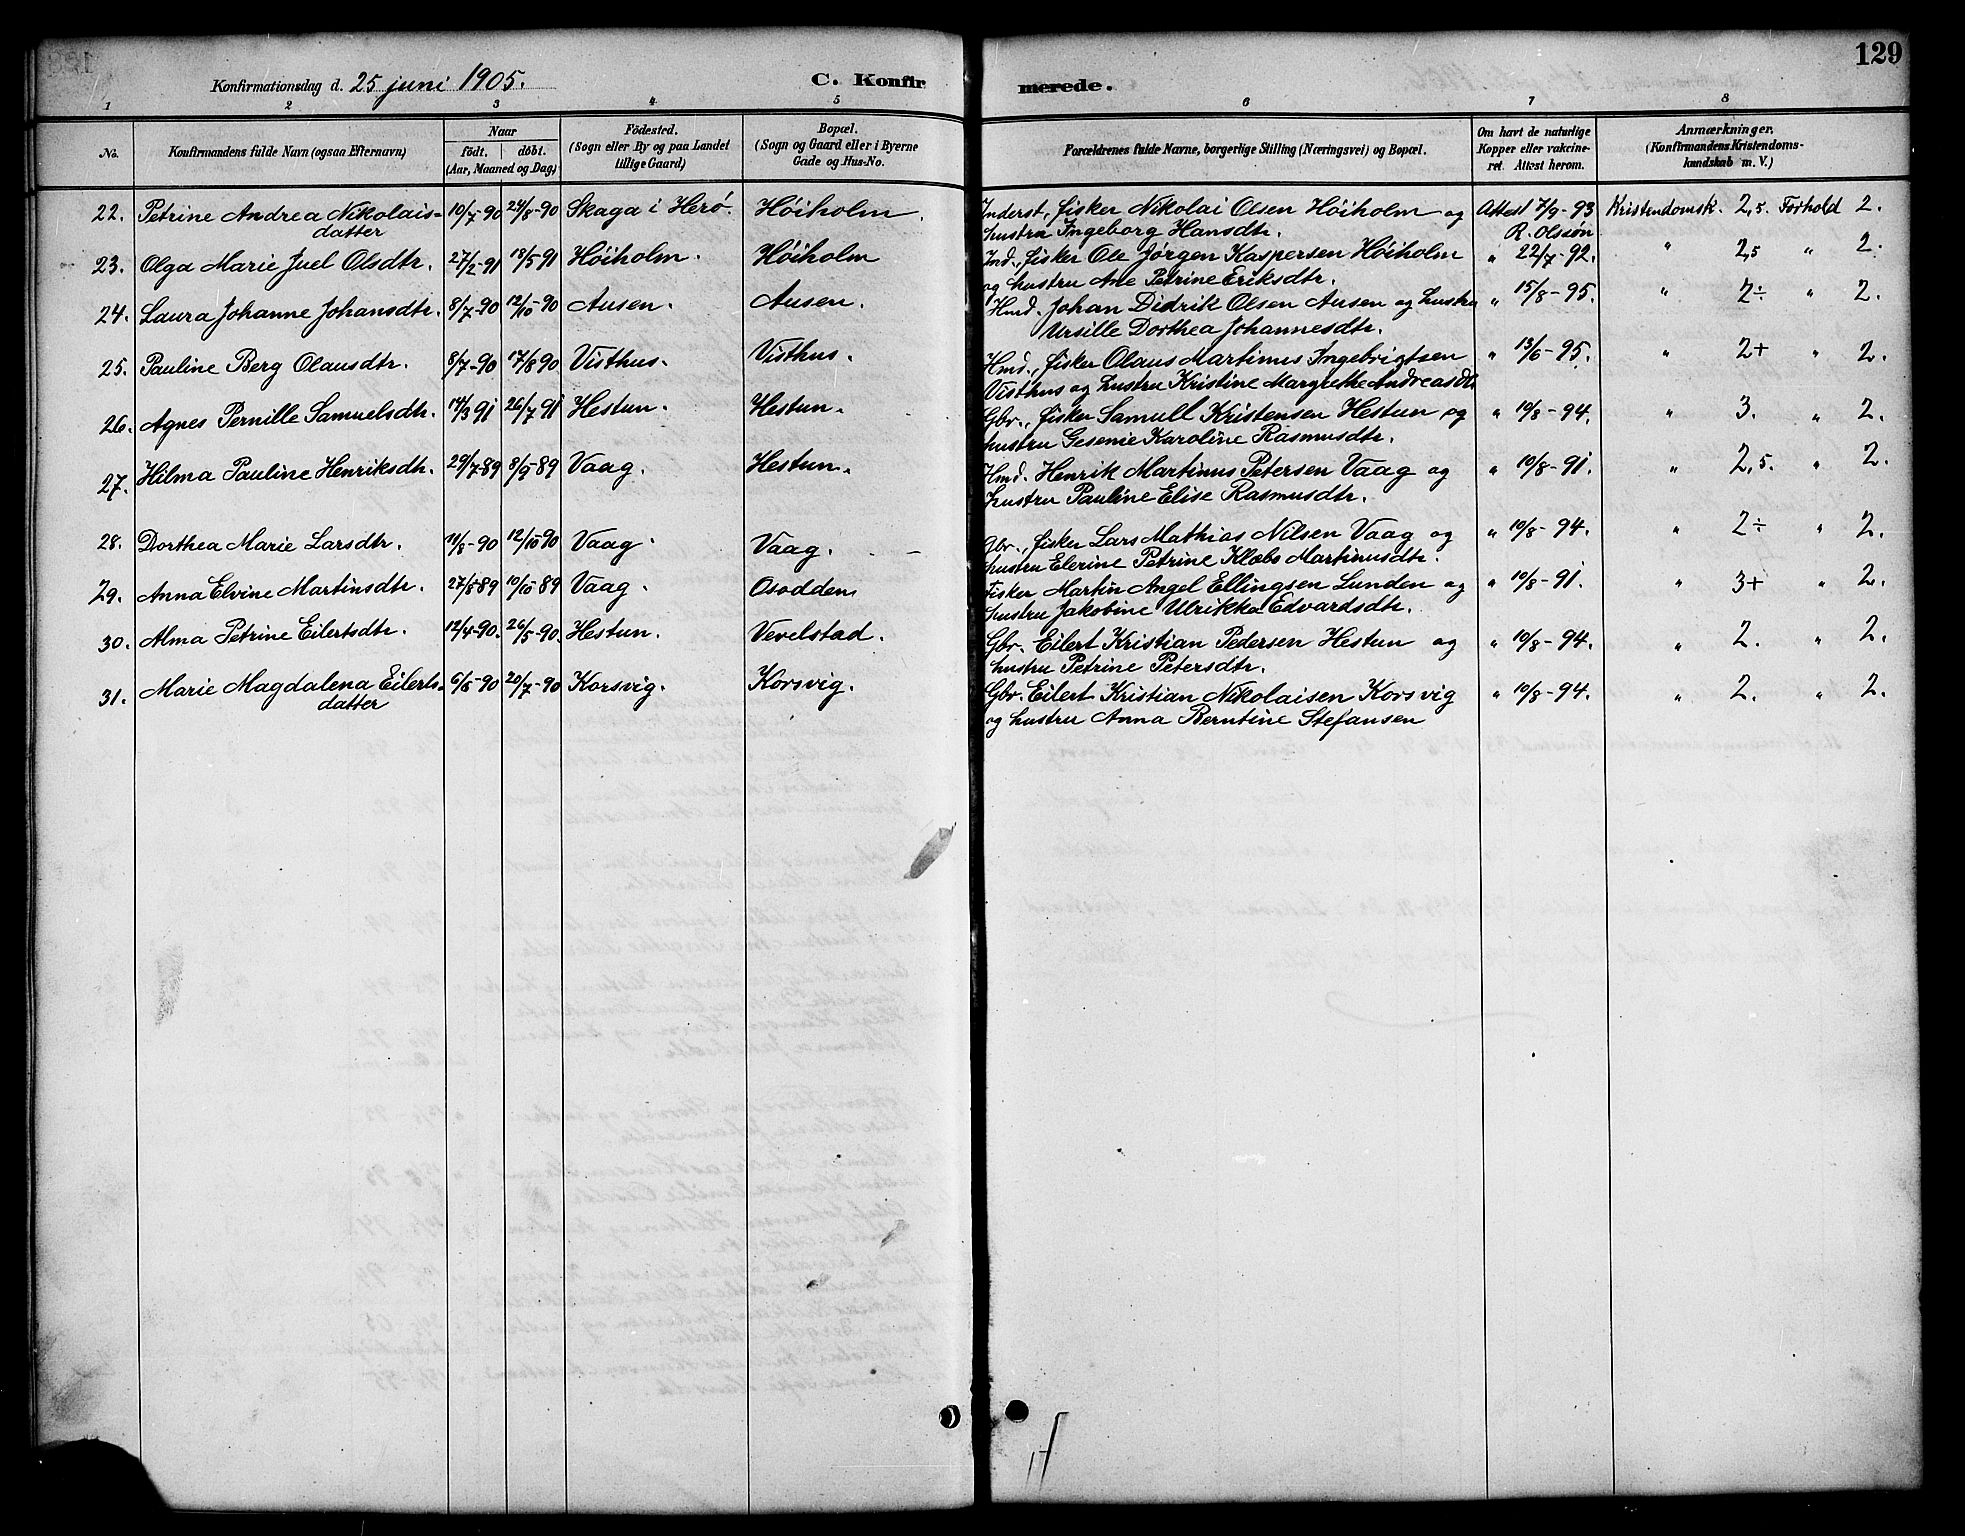 129
Konfirmationsdag d. 25 juni 1905. C. Konfirmerede.
1 2 3 4 5 6 7 8
No. Konfirmandens fulde Navn (ogsaa Efternavn) Naar født, døbt. (Aar, Maaned og Dag) Fødested. (Sogn eller By og paa Landet tillige Gaard) Bopæl. (Sogn og Gaard eller i Byerne Gade og Hus-No. Forældrenes fulde Navne, borgerlige Stilling (Næringsvei) og Bopæl. Om havt de naturlige Kopper eller vakcineret. Attest herom. Anmærkninger. (Konfirmandens Kristendomskundskab m. V.)
22. Petrine Andrea Nikolais- 10/7-90 24/8-90 Skaga i Herø. Høiholm. Inderst, fisker Nikolai Olsen Høiholm og Attest 7/9-93 Kristendomsk. 2,5. Forhold 2.
datter hustru Ingeborg Hansdtr. R. Olssøn
23. Olga Marie Juel Olsdtr. 27/2-91 18/5 91 Høiholm. Høiholm Ind., fisker Ole Jørgen Kaspersen Høiholm " 22/7-92. " 2,5 " 2.
og hustru Ane Petrine Eriksdtr.
24. Laura Johanne Johansdtr. 8/7-90 12/10-90 Ausen. Ausen. Hmd. Johan Didrik Olsen Ausen og hustru " 15/8-95. " 2÷ " 2.
Ursille Dorthea Johannesdtr.
25. Pauline Berg Olausdtr. 8/7-90 17/8 90 Visthus. Visthus. Hmd., fisker Olaus Martinus Ingebrigtsen " 13/6-95. " 2+ " 2.
Visthus og hustru Kristine Margrethe Andreasdtr.
26. Agnes Pernille Samuelsdtr. 14/3 91 26/7-91 Hestun. Hestun. Gbr., fisker Samull Kristensen Hestun og " 10/8-94. " 3. " 2.
hustru Gesenie Karoline Rasmusdtr.
27. Hilma Pauline Henriksdtr. 29/7-89 8/9-89 Vaag. Hestun. Hmd. Henrik Martinus Petersen Vaag og " 10/8-91. " 2,5. " 2.
hustru Pauline Elise Rasmusdtr.
28. Dorthea Marie Larsdtr. 11/8-90 12/10 90 Vaag. Vaag. Gbr., fisker Lars Mathias Nilsen Vaag og " 10/8-94. " 2÷ " 2.
hustru Elerine Petrine Klæbs Martinusdtr.
29. Anna Elvine Martinsdtr. 27/8-89 10/10-89 Vaag. Osodden Fisker Martin Angel Ellingsen Lunden og " 10/8-91. " 3+ " 2.
hustru Jakobine Ulrikka Edvardsdtr.
30. Alma Petrine Eilertsdtr. 12/4-90. 26/5-90 Hestun. Vevelstad. Gbr. Eilert Kristian Pedersen Hestun og " 10/8-94. " 2. " 2.
hustru Petrine Petersdtr.
31. Marie Magdalena Eilerts- 6/6-90 20/7-90 Korsvig. Korsvig. Gbr. Eilert Kristian Nikolaisen Korsvig " 10/8-94. " 2. " 2.
datter og hustru Anna Berntine Stefansen